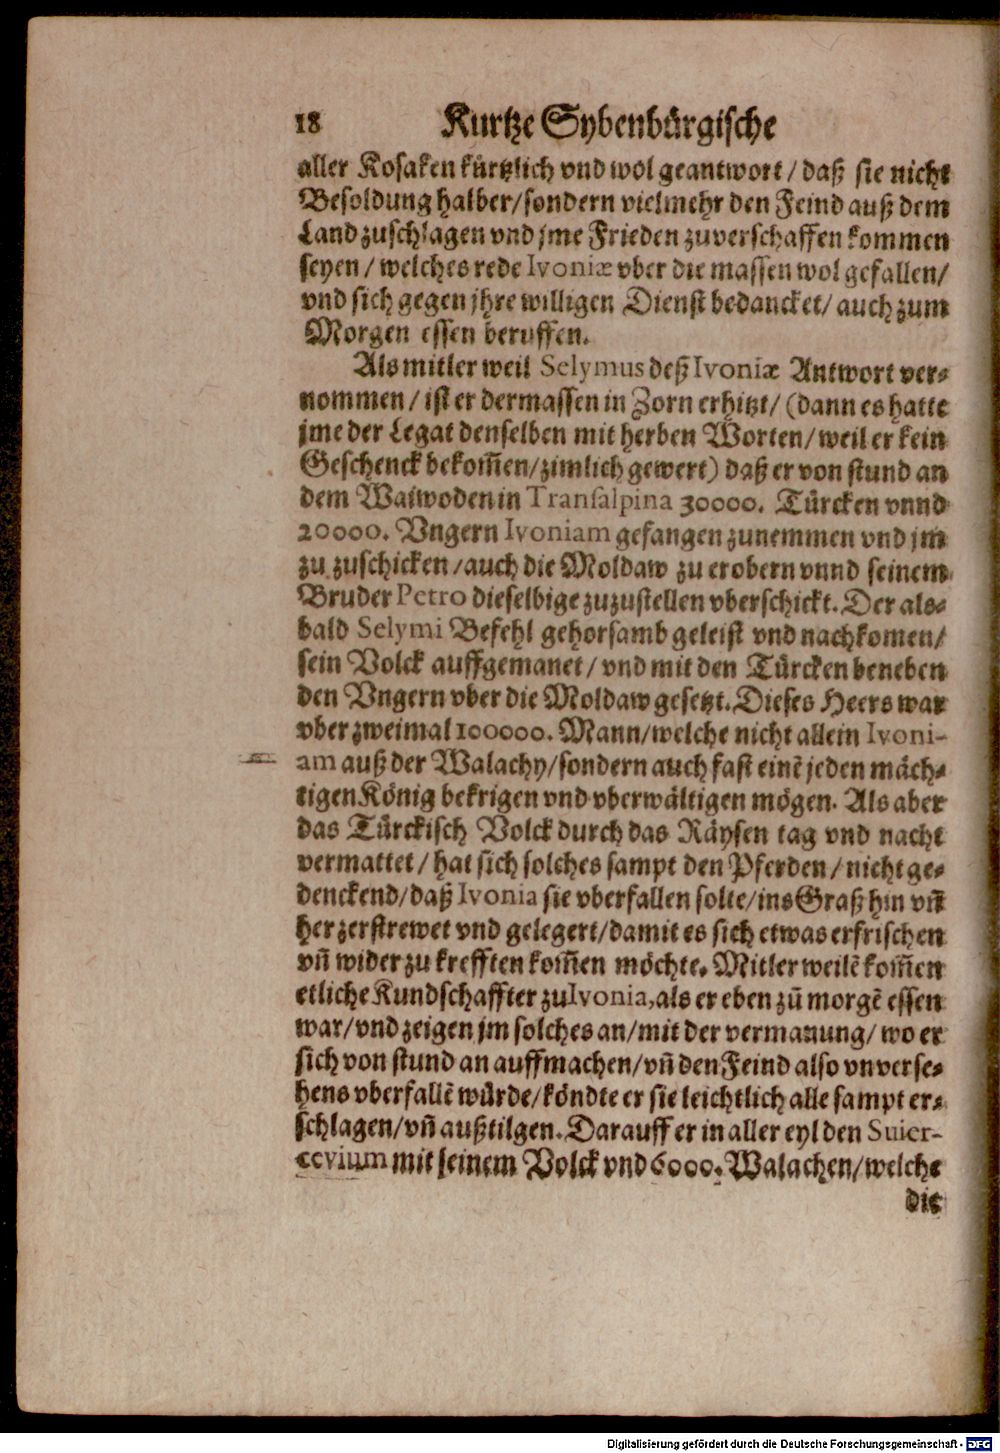 18 Kurtze Sybenbürgische
aller Kosaken kürtzlich vnd wol geantwort / daß sie nicht
Besoldung halber/sondern vielmehr den Feind auß dem
Land zuschlagen vnd jme Frieden zuverschaffen kommen
seyen / welches rede Ivoniæ vber die massen wol gefallen/
vnd sich gegen jhre willigen Dienst bedancket/ auch zum
Morgen essen beruffen.
Als mitler weil Selymus deß Ivoniæ Antwort ver-
nommen / ist er dermassen in Zorn erhitzt/ (dann es hatte
jme der Legat denselben mit herben Worten/ weil er kein
Geschenck bekom̃en/zimlich gewert) daß er von stund an
dem Waiwoden in Transalpina 30000. Türcken vnnd
20000. Vngern Ivoniam gefangen zunemmen vnd jm
zu zuschicken /auch die Moldaw zu erobern vnnd seinem
Bruder Petro dieselbige zuzustellen vberschickt. Der als-
bald Selymi Befehl gehorsamb geleist vnd nachkomen/
sein Volck auffgemanet/ vnd mit den Türcken beneben
den Vngern vber die Moldaw gesetzt. Dieses Heers war
vber zweimal 100000. Mann/welche nicht allein Ivoni-
am auß der Walachy/sondern auch fast einẽ jeden mäch-
tigen König bekrigen vnd vberwältigen mögen. Als aber
das Türckisch Volck durch das Räysen tag vnd nacht
vermattet / hat sich solches sampt den Pferden / nicht ge-
denckend/daß Ivonia sie vberfallen solte/ins Graß hin vñ
her zerstrewet vnd gelegert/damit es sich etwas erfrischen
vñ wider zu krefften kom̃en möchte. Mitler weilẽ kom̃en
etliche Kundschaffter zu Ivonia, als er eben zũ morgẽ essen
war/vnd zeigen jm solches an/mit der vermanung/ wo er
sich von stund an auffmachen/vñ den Feind also vnverse-
hens vberfallẽ würde/köndte er sie leichtlich alle sampt er-
schlagen/vñ außtilgen. Darauff er in aller eyl den Suier-
cevium mit seinem Volck vnd 6000. Walachen/welche
die
Digitalisierung gefördert durch die Deutsche Forschungsgemeinschaft - DFG